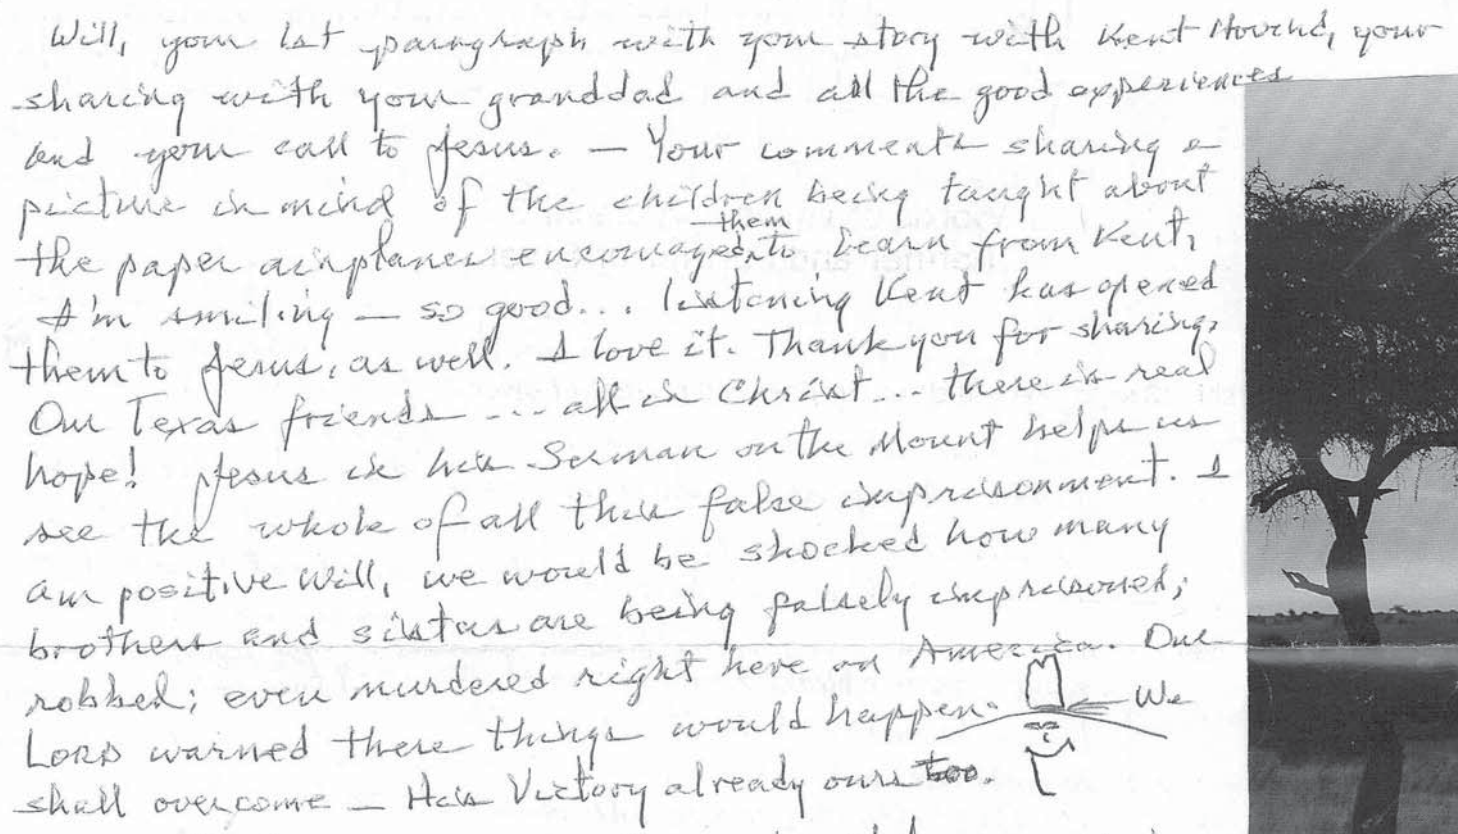 Will, your last paragraph with your story with Kent Hovind, your
sharing with your granddad and all the good experiences
and your call to Jesus. — Your comments sharing a
picture in mind of the children being taught about
the paper airplanes encouraged them to learn from Kent,
I'm smiling — so good... listening Kent has opened
them to Jesus, as well. I love it. Thank you for sharing.
Our Texas friends --- all in Christ... there is real
hope! Jesus in his Sermon on the Mount helps us
see the whole of all this false imprisonment. I
am positive Will, we would be shocked how many
brothers and sisters are being falsely imprisoned;
robbed; even murdered right here in America. Our
LORD warned these things would happen. — We
shall overcome — His Victory already ours too.